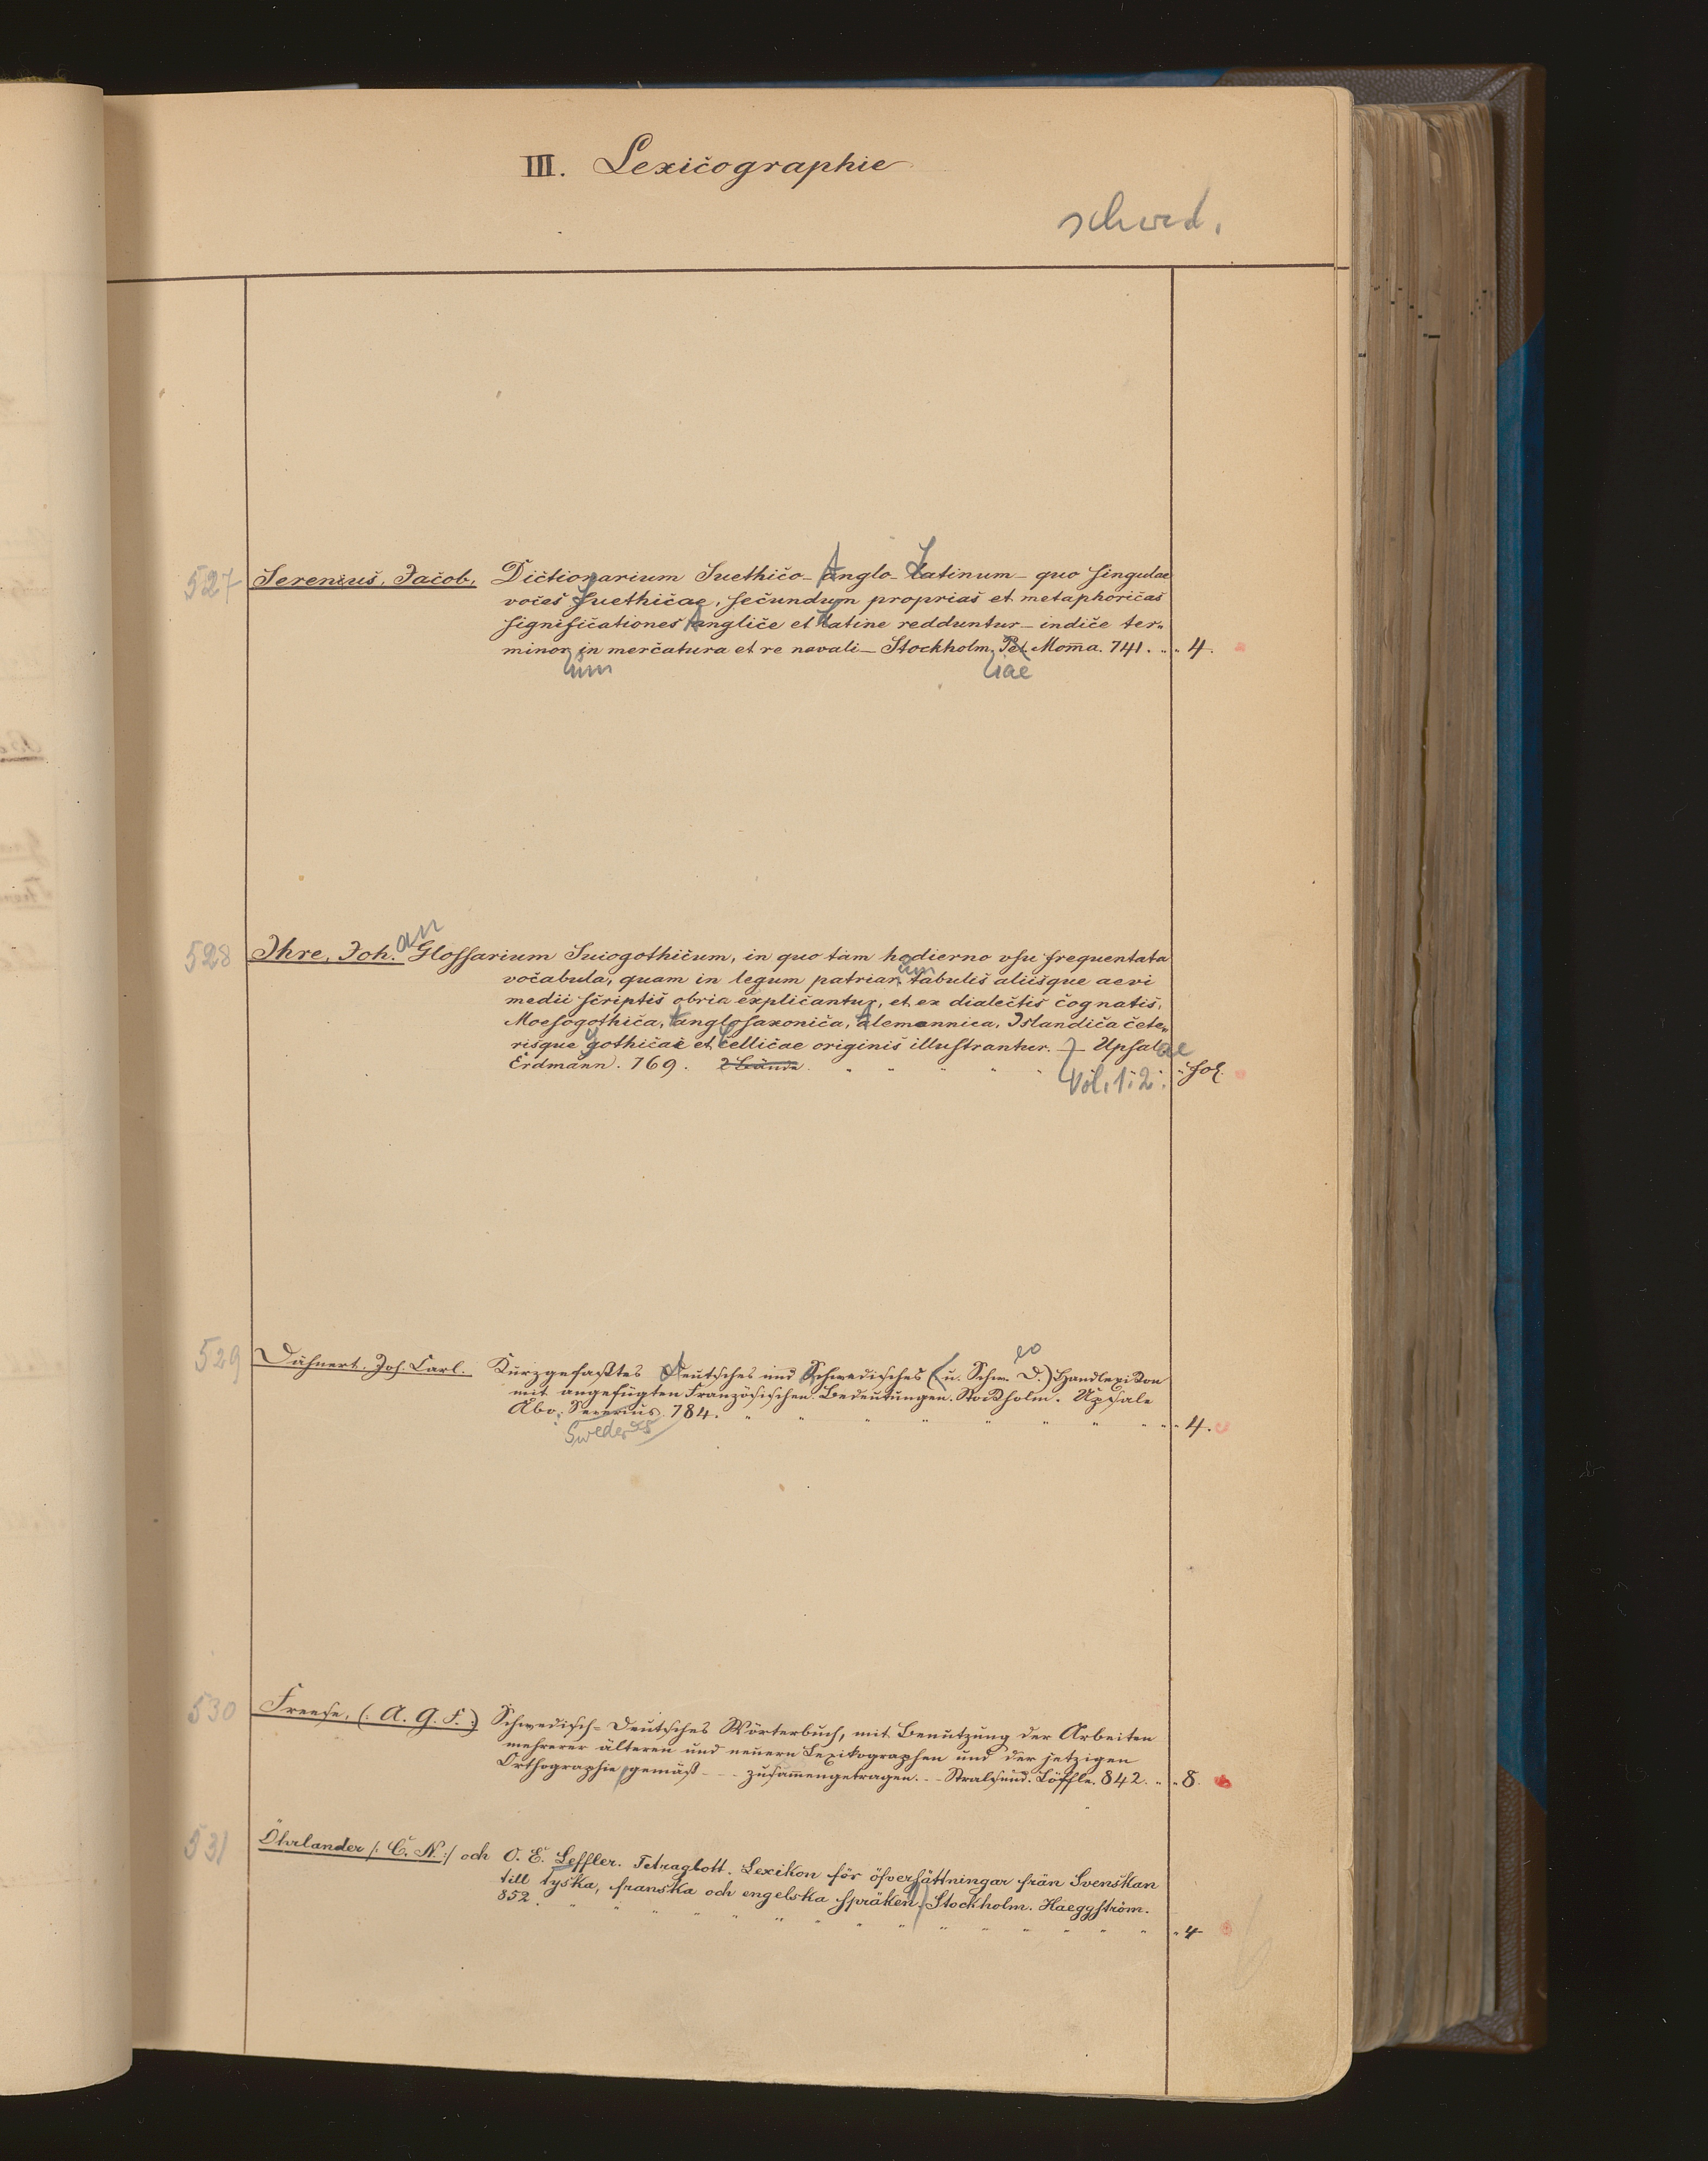 III. Lexicographie
schwed.
527 Serenius, Jacob, Dictionarium Suethico-Anglo-Latinum- quo singulae
voces Suethicae, secundum proprias et metaphoricas
significationes Anglice et Latine redduntur- indice ter-
minor in mercatura et re navali- Stockholm. Pet. Mom̄a. 741. 4.
um iae
528 Ihre, Joh. Glossarium Suiogothicum, in quo tam hodierno vsu frequentata
an
vocabula, quam in legum patriar tabulis aliisque aevi
um
medii scriptis obvia explicantur, et ex dialectis cognatis,
Moesogothica, Anglosaxonica, Alemannica, Islandica cete-
risque gothicae et Celticae originis illustrantur. - Upsalae
Erdmann. 769. 2 Bände Vol. 1. 2. fol.
529 Dähnert, Joh. Carl. Kurzgefaßtes deutsches und Schwedisches (u. Schw. D.) Handlexikon
mit angefügten Französischen Bedeutungen. Stockholm. Upsale
Abo. Severus 784. 4.
Swederus
530 Freese, (: A. G. F. :) Schwedisch-Deutsches Wörterbuch, mit Benutzung der Arbeiten
mehrerer älteren und neuern Lexikographen und der jetzigen
Orthographie gemäß - - - zusam̄engetragen. - - Stralsund. Löffler. 842. 8.
531 Öhrlander /: C. N. :/ och O. E. Leffler. Tetraglott. Lexikon för öfversättningar från Svenskan
till tyska, franska och engelska språken. Stockholm. Haeggström.
852. 4